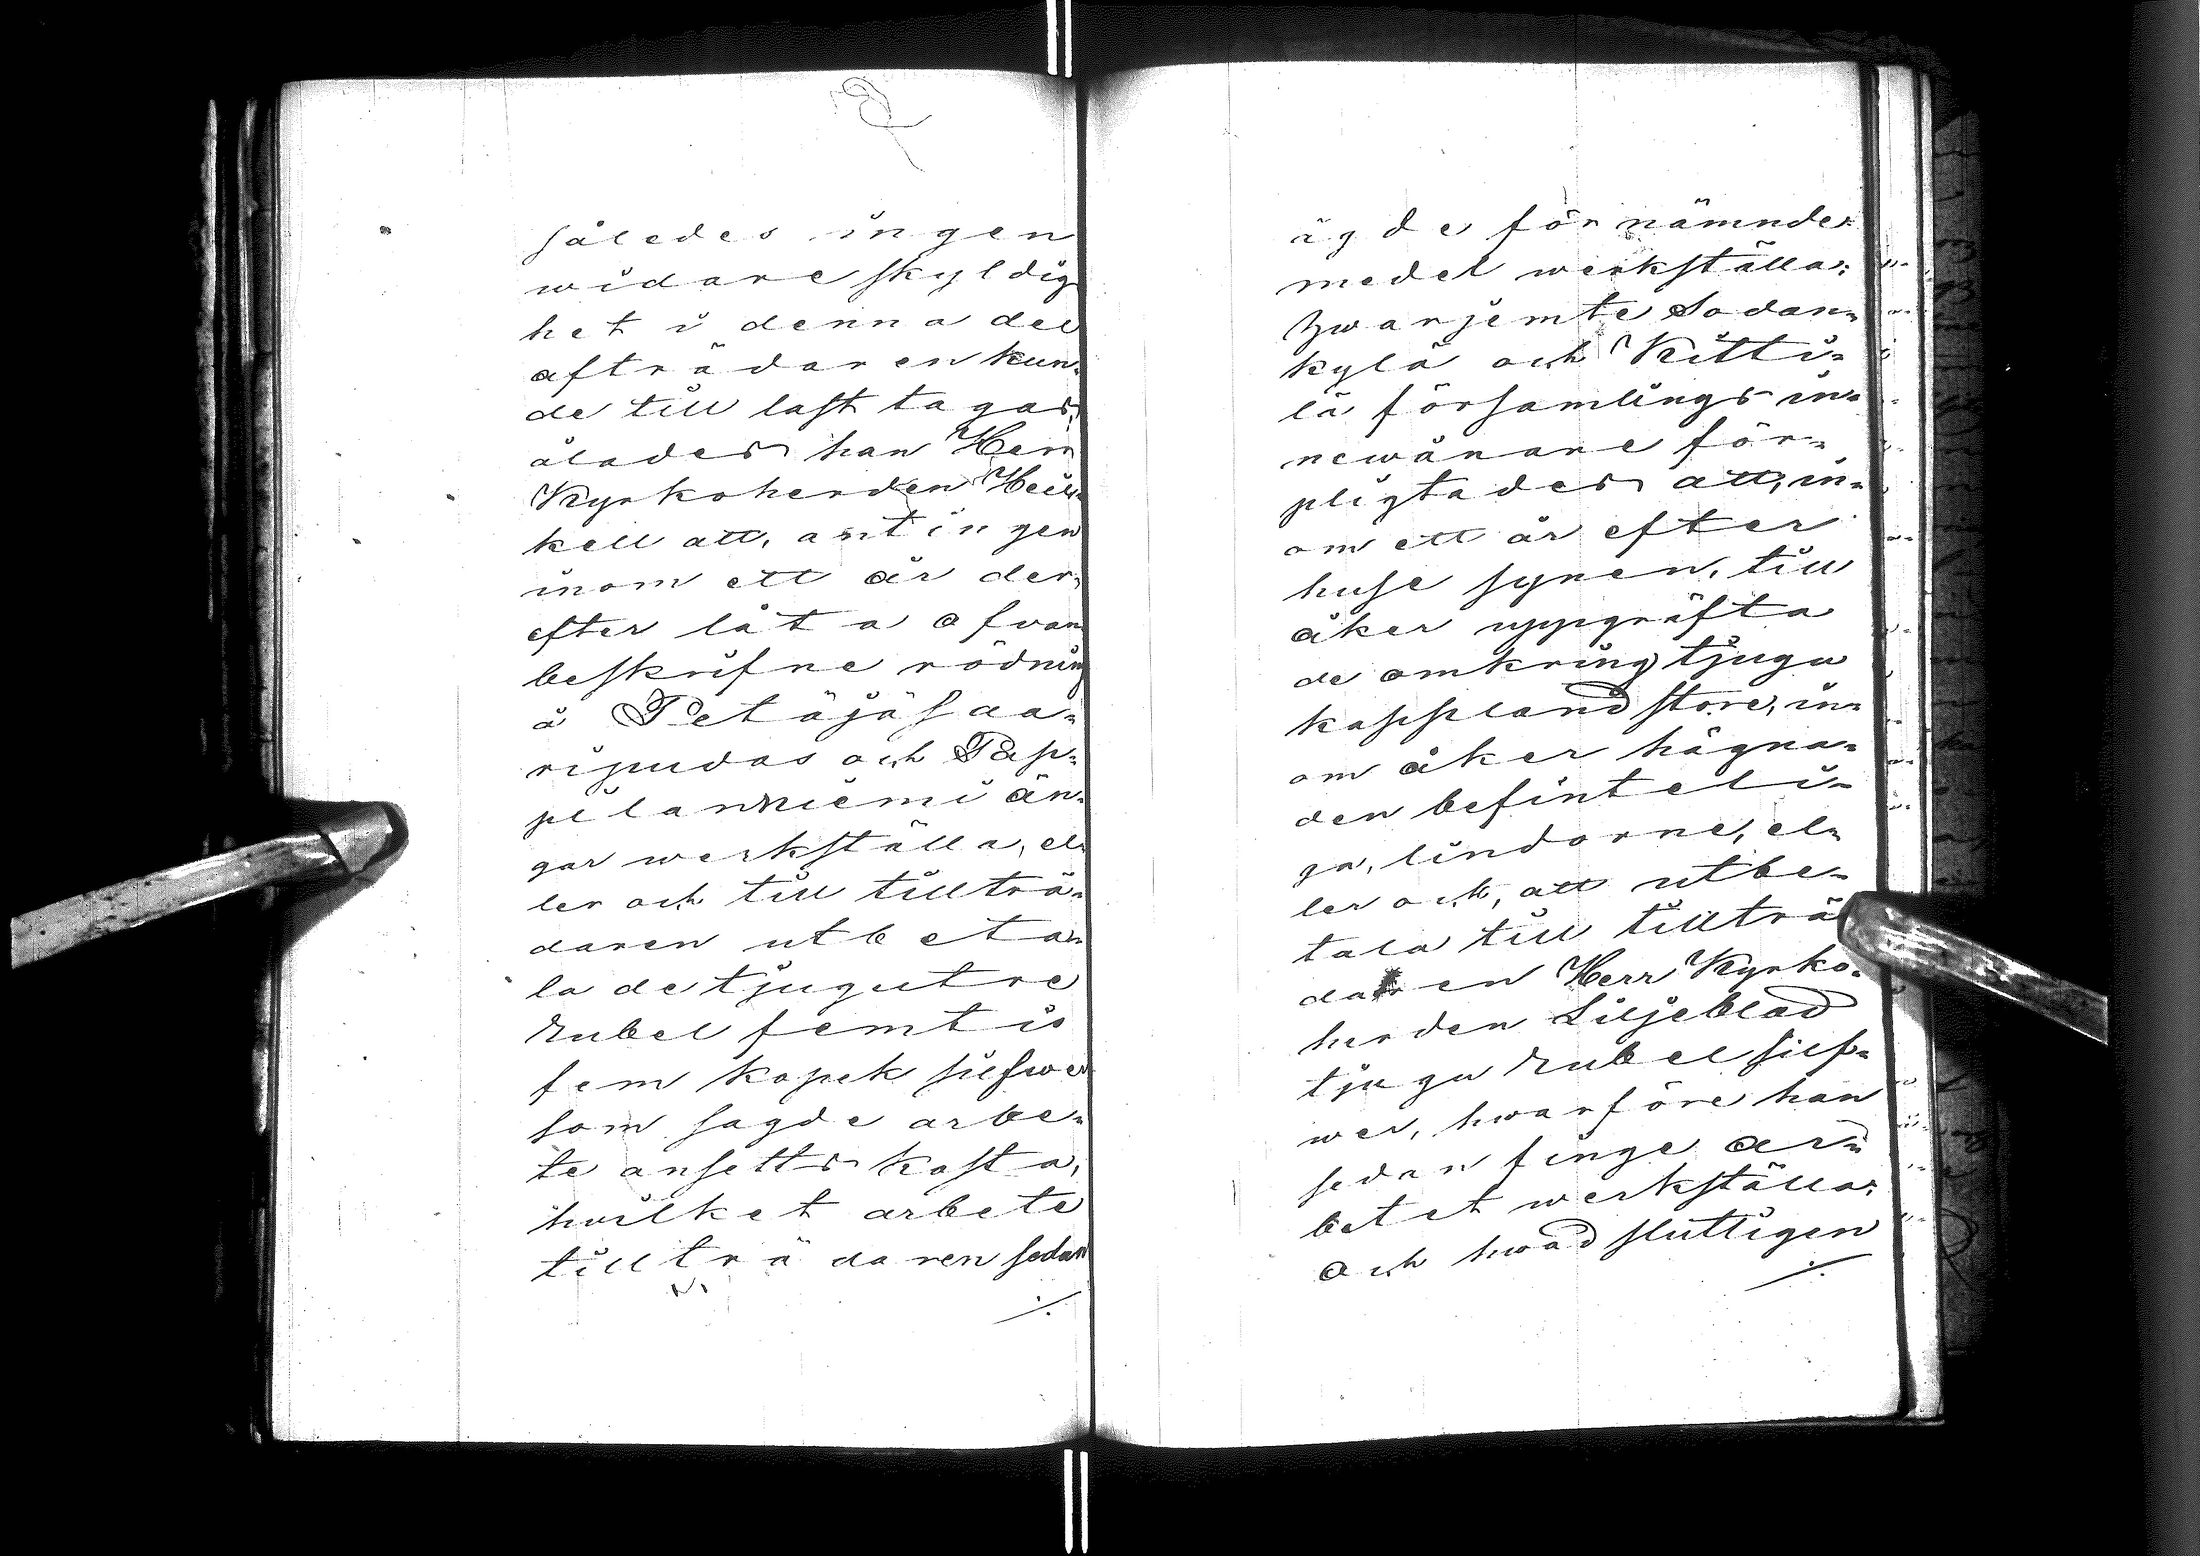 således ingen
widare skyldig
het i denna del
afträdaren kun-
de till last tagas,
ålades han Herr
Kyrkoherden Heik-
kell att, antingen
inom ett år der-
efter låta ofvan
beskrifne rödning
å Petäjäsaa-
ripudas och Pap-
pilanniemi än-
gar werkställa, el-
ler och till tillträ-
daren utbeta-
la de tjugutre
Rubel femtio
fem kopek silfwer
som sagde arbe-
te ansetts kosta,
hwilket arbete
tillträdaren sedan
./.
ägde förnämnde
medel werkställa;
hwarjemte Sodan-
kylä och Kitti-
lä församlings in-
newånare för-
pligtades att, in-
om ett år efter
huse synen, till
åker uppgräfta
de omkring tjugu
kappland store, in-
om åker hägna-
den befinteli-
ga, lindorne, el-
ler och, att utbe-
tala till tillträ
daren Herr Kyrko-
herden Liljeblad
tjugu Rubel silf-
wer, hwarföre han
sedan finge ar-
betet werkställa;
och hwad sluttligen
./.